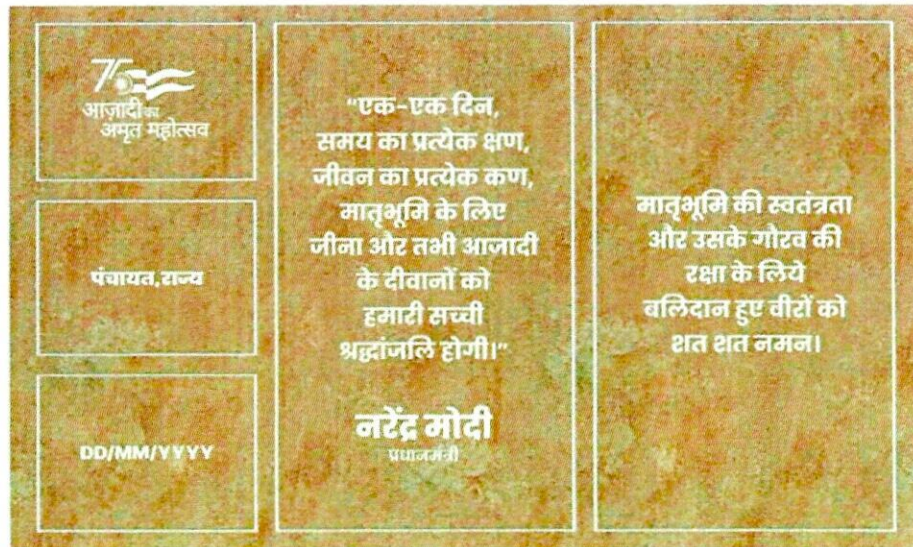 75
आज़ादी का
अमृत महोत्सव
पंचायत,राज्य
DD/MM/YYYY
“एक-एक दिन,
समय का प्रत्येक क्षण,
जीवन का प्रत्येक कण,
मातृभूमि के लिए
जीना और तभी आजादी
के दीवानों को
हमारी सच्ची
श्रद्धांजलि होगी।”
नरेंद्र मोदी
प्रधानमंत्री
मातृभूमि की स्वतंत्रता
और उसके गौरव की
रक्षा के लिये
बलिदान हुए वीरों को
शत शत नमन।